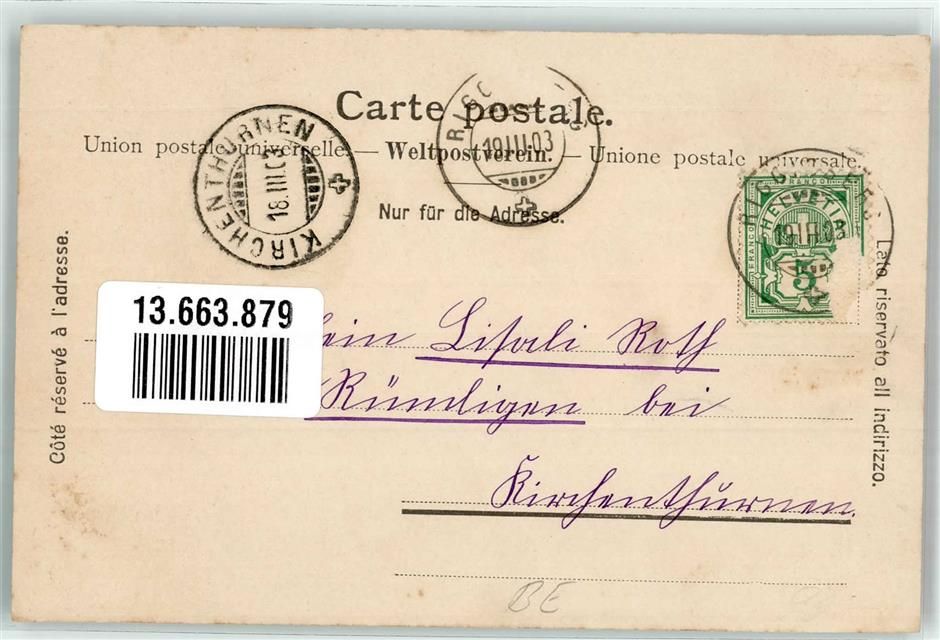 Carte postale.
Union postale universelle. — Weltpostverein. — Unione postale universale.
Nur für die Adresse.
KIRCHENTHURNEN
18.III.03
19.III.03
FRANCO
HELVETIA
FRANCO
19.III.03
5
Côté réservé à l'adresse.
Lato riservato all indirizzo.
13.663.879
lein Lisali Roth
Rümligen bei
Kirchenthurnen.
BE